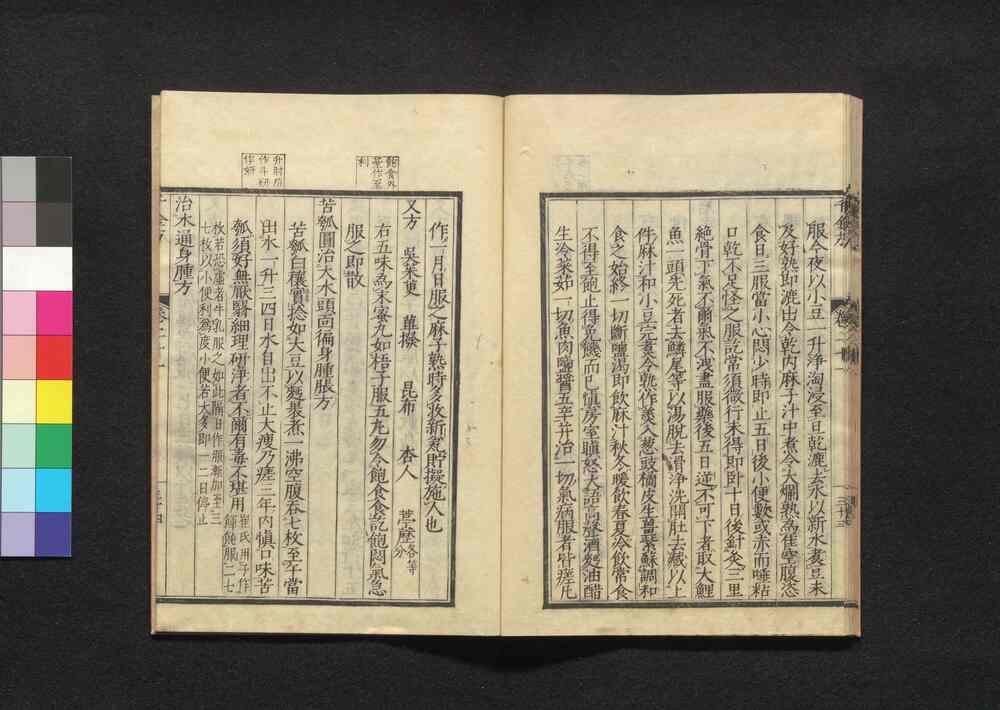 服今夜以小豆一升淨淘浸至旦乾漉去水以新水煮豆未
及好熟即漉出令乾內麻子汁中煮令大爛熟為佳空腹恣
食日三服當小心悶少時即止五日後小便數或赤而唾粘
口乾不足怪之服訖常須微行未得即卧十日後針灸三里
絶骨下氣不爾氣不洩盡服藥後五日逆不可下者取大鯉
魚一頭先死者去鱗尾等以湯脫去滑淨洗開肚去臟以上
件麻汁和小豆完煮令熟作羹入葱豉橘皮生薑紫蘇調和
食之始終一切斷鹽渴即飲麻汁秋冬暖飲春夏冷飲常食
不得至飽止得免饑而已慎房室瞋怒大語高聲酒麪油醋
生冷菜茹一切魚肉鹽醬五辛并治一切氣病服者皆瘥凡
作一月日服之麻子熟時多收新瓮貯擬施人也
又方　吳茱萸　蓽撥　昆布　杏人　葶藶各等分
右五味為末蜜丸如梧子服五丸勿令飽食食訖飽悶氣急
服之即散
苦瓠圓治大水頭面徧身腫脹方
苦瓠白穰實捻如大豆以麪裹煮一沸空腹吞七枚至午當
出水一升三四日水自出不止大瘦乃瘥三年內慎口味苦
瓠須好無厭翳細理研淨者不爾有毒不堪用崔氏用子作餛飩服二七
枚若恐虛者牛乳服之如此隔日作服漸加至三
七枚以小便利為度小便若太多即一二日停止
治水通身腫方